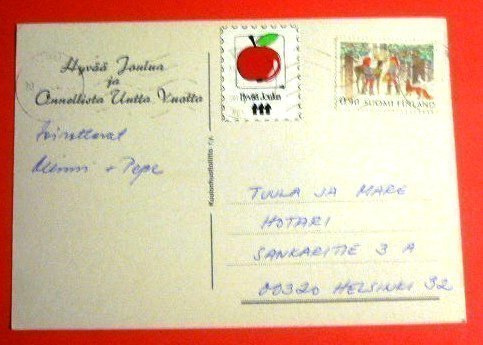 Hyvää Joulua
ja
Onnellista Uutta Vuotta
Toivottavat
Mimmi + Pepe
Hyvää Joulua
0,90 SUOMI FINLAND
Kuulonhuoltoliitto r.y.
TUULA JA MARE
HOTARI
SANKARITIE 3 A
00320 HELSINKI 32